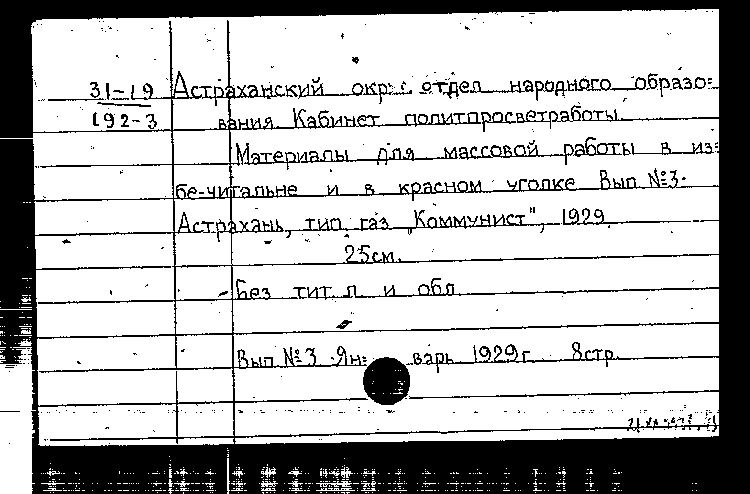 31-19 Астраханский окр. отдел народного образо=
192-3 вания. Кабинет политпросветработы.
Материалы для массовой работы в из=
бе-читальне и в красном уголке Вып №3.
Астрахань, тип. газ. „Коммунист", 1929.
25см.
Без тит. л. и обл.
Вып №3 Ян= варь 1929 г. 8стр.